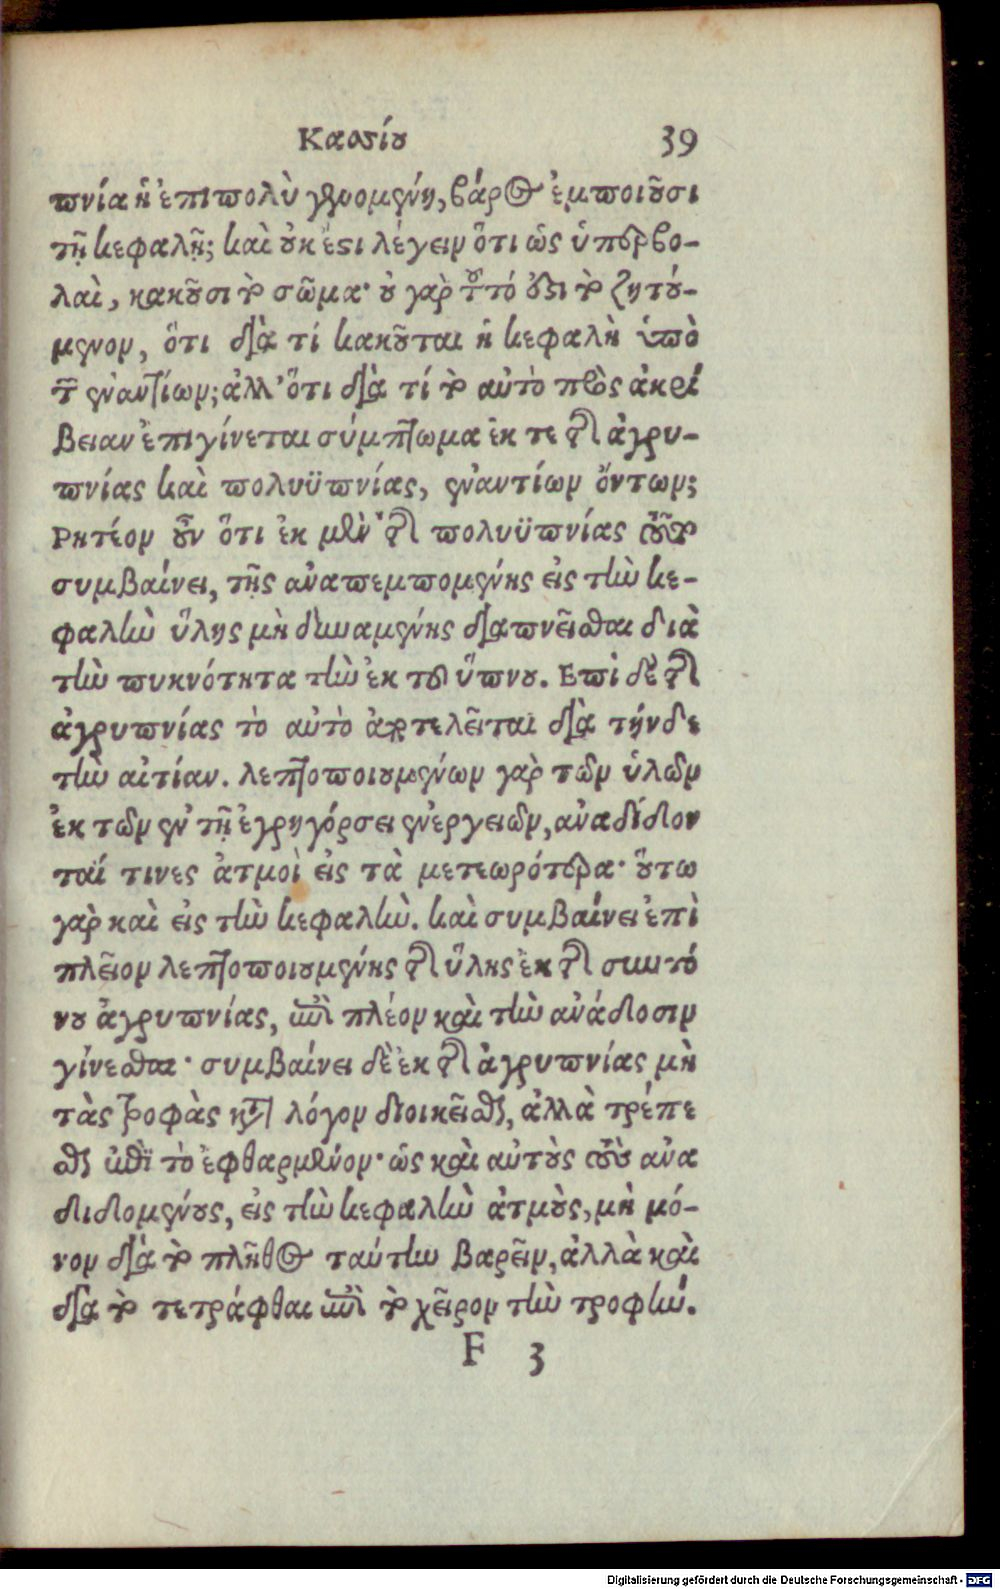 Κασσίου 39
πνία ἡ ἐπιπολὺ γενομένη, βάρος ἐμποιοῦσι
τῇ κεφαλῇ; καὶ οὐκ ἔστι λέγειν ὅτι ὡς ὑπερβο-
λαὶ, κακοῦσι τὸ σῶμα· οὐ γὰρ τοῦτό ἐστι τὸ ζητού-
μενον, ὅτι διὰ τί κακοῦται ἡ κεφαλὴ ὑπὸ
τῶν ἐναντίων; ἀλλ' ὅτι διὰ τί τὸ αὐτὸ πρὸς ἀκρί
βειαν ἐπιγίνεται σύμπτωμα ἐκ τε τῆς ἀγρυ-
πνίας καὶ πολυϋπνίας, ἐναντίων ὄντων;
Ρητέον οὖν ὅτι ἐκ μὲν τῆς πολυϋπνίας τοῦτο
συμβαίνει, τῆς ἀναπεμπομένης εἰς τὴν κε-
φαλὴν ὕλης μὴ δυναμένης διαπνεῖσθαι διὰ
τὴν πυκνότητα τὴν ἐκ τοῦ ὕπνου. Επὶ δὲ τῆς
ἀγρυπνίας τὸ αὐτὸ ἀποτελεῖται διὰ τήνδε
τὴν αἰτίαν. λεπτοποιουμένων γὰρ τῶν ὑλῶν
ἐκ τῶν ἐν τῇ ἐγρηγόρσει ἐνεργειῶν, ἀναδίδον
ταί τινες ἀτμοὶ εἰς τὰ μετεωρότερα· οὕτω
γὰρ καὶ εἰς τὴν κεφαλὴν. καὶ συμβαίνει ἐπὶ
πλεῖον λεπτοποιουμένης τῆς ὕλης ἐκ τῆς συντό
νου ἀγρυπνίας, ἐπὶ πλέον καὶ τὴν ἀνάδοσιν
γίνεσθαι· συμβαίνει δὲ ἐκ τῆς ἀγρυπνίας μὴ
τὰς τροφὰς κατὰ λόγον διοικεῖσθαι, ἀλλὰ τρέπε
σθαι ἐπὶ τὸ ἐφθαρμένον· ὡς καὶ αὐτοὺς τοὺς ἀνα
διδομένους, εἰς τὴν κεφαλὴν ἀτμοὺς, μὴ μό-
νον διὰ τὸ πλῆθος ταύτην βαρεῖν, ἀλλὰ καὶ
διὰ τὸ τετράφθαι ἐπὶ τὸ χεῖρον τὴν τροφήν.
F 3
Digitalisierung gefördert durch die Deutsche Forschungsgemeinschaft - DFG